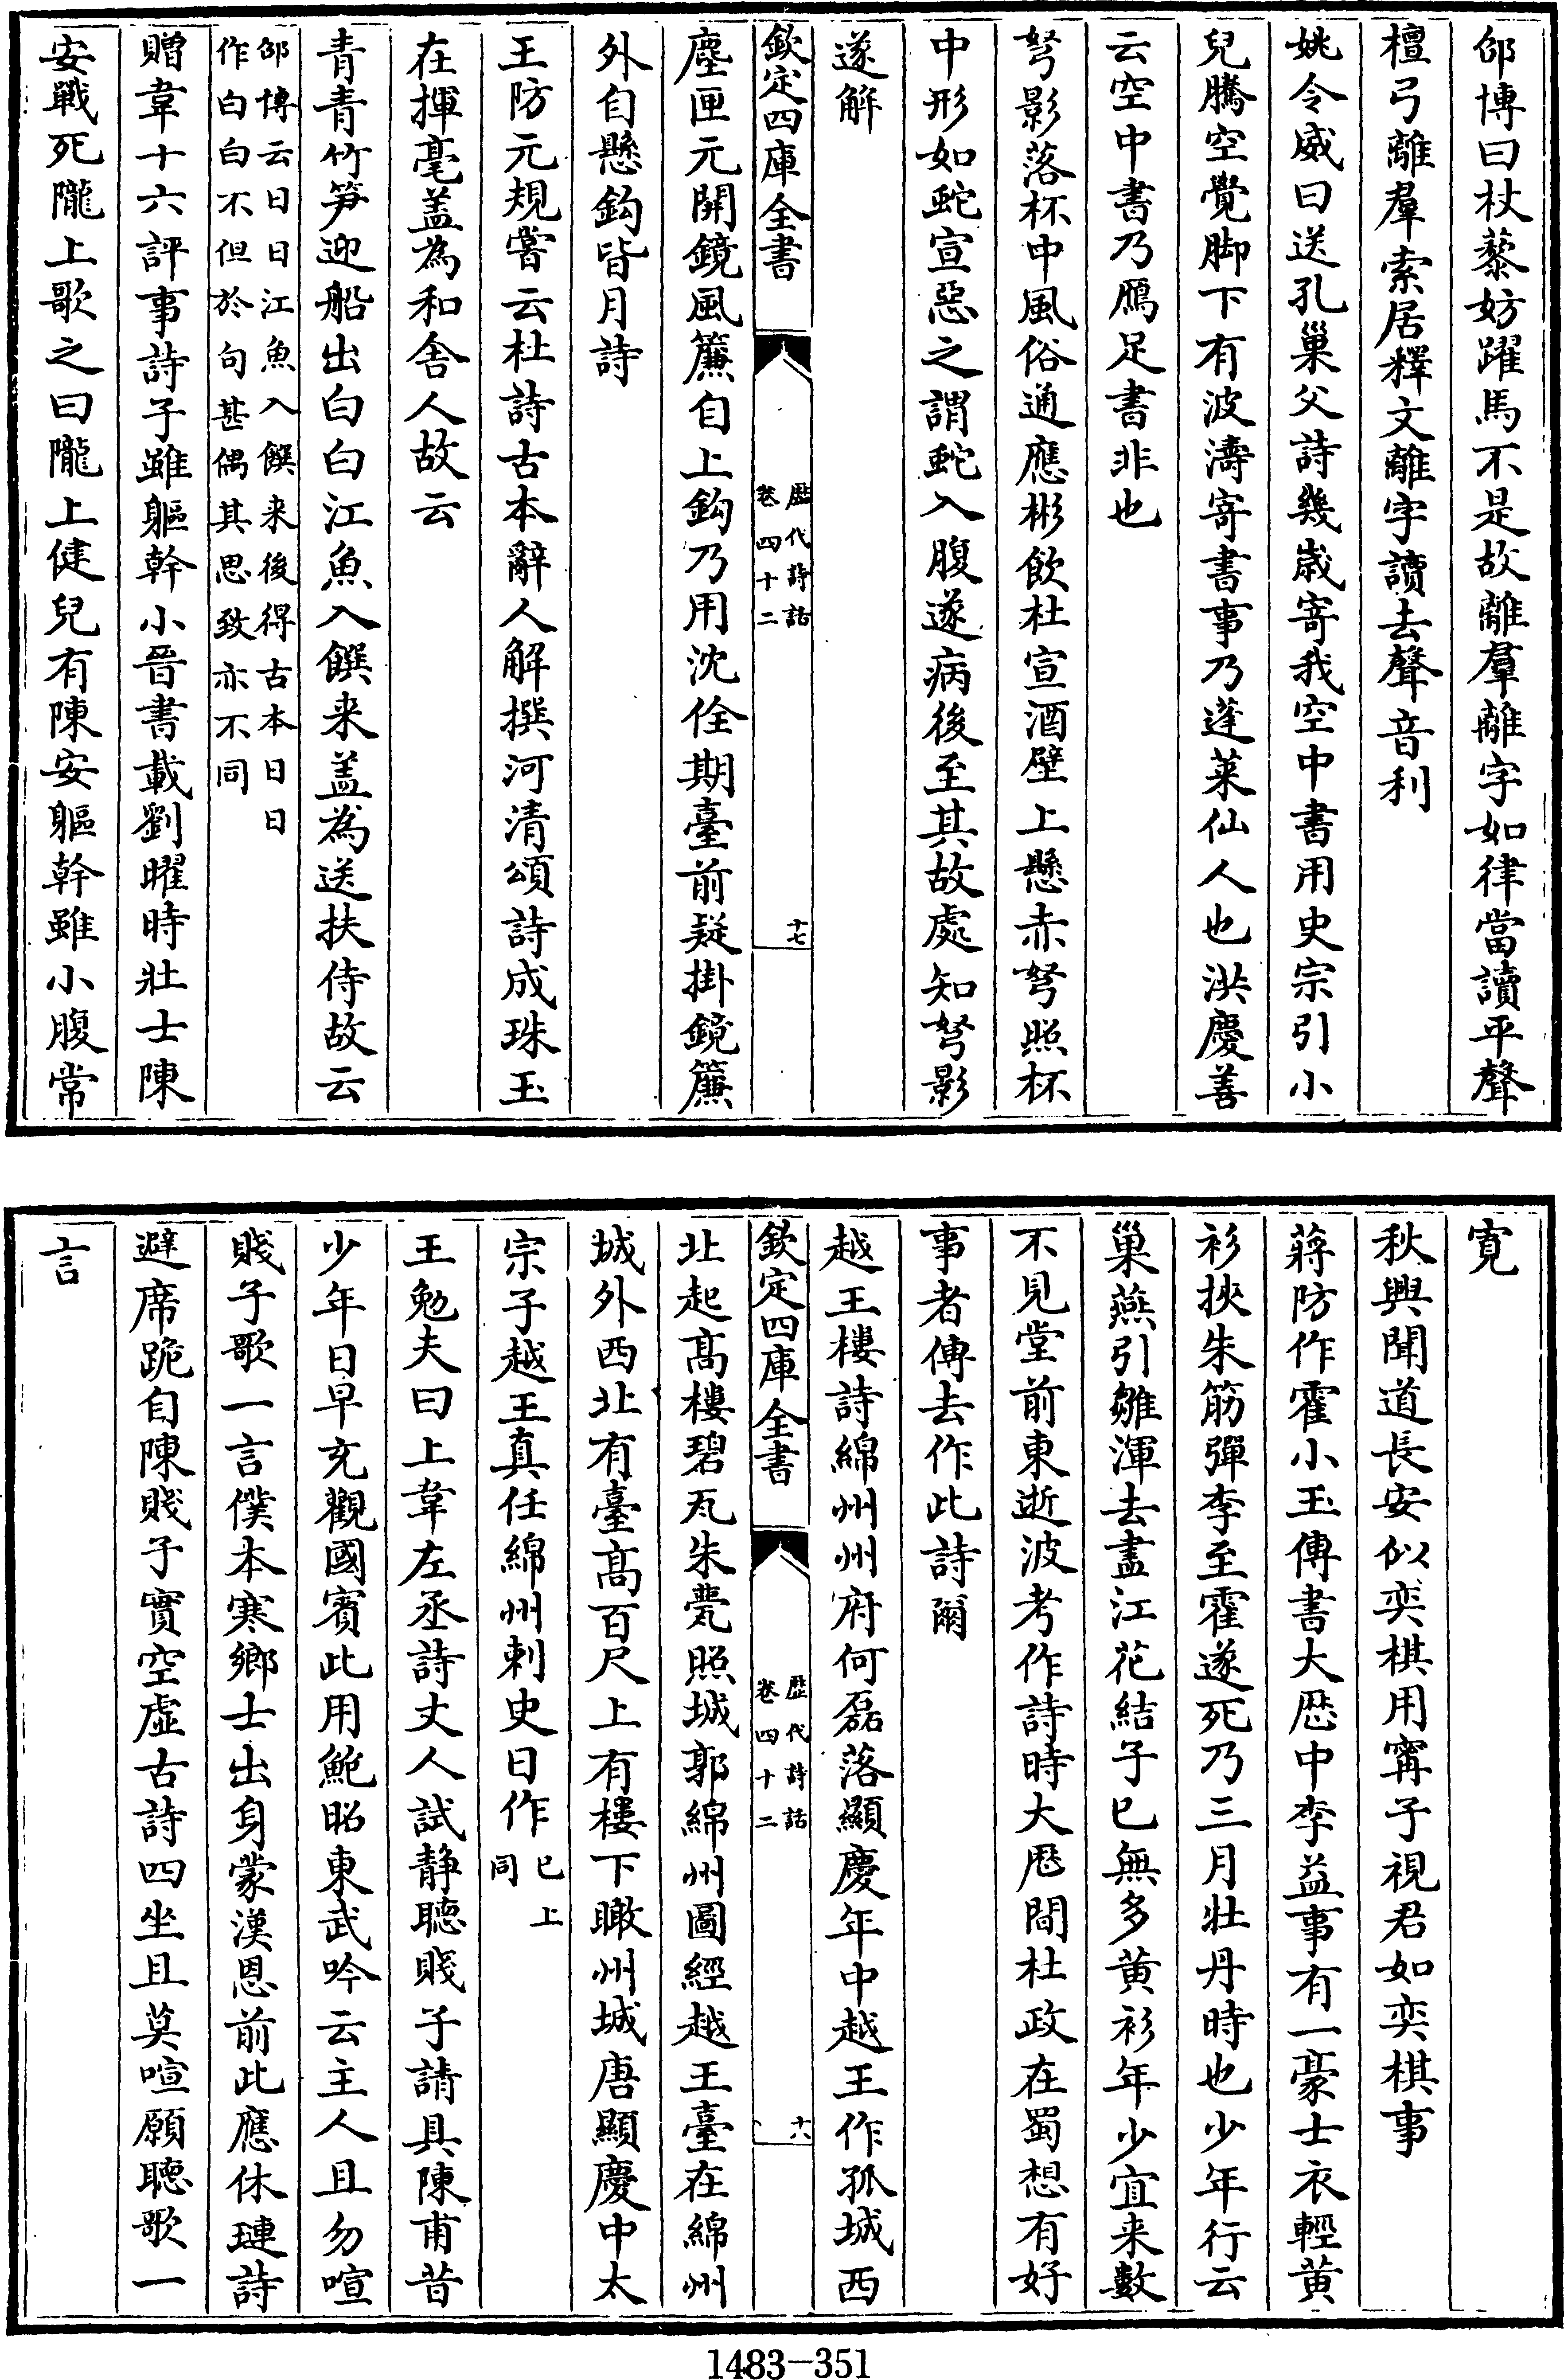 邵博曰杖藜妨躍馬不是故離羣離字如律當讀平聲
檀弓離羣索居釋文離字讀去聲音利
姚令威曰送孔巢父詩幾歲寄我空中書用史宗引小
兒騰空覺脚下有波濤寄書事乃蓬萊仙人也洪慶善
云空中書乃鴈足書非也
弩影落杯中風俗通應彬飲杜宣酒壁上懸赤弩照杯
中形如蛇宣惡之謂蛇入腹遂病後至其故處知弩影
遂解
欽定四庫全書
歴代詩話
卷四十二
十七
塵匣元開鏡風簾自上鈎乃用沈佺期臺前疑掛鏡簾
外自懸鈎皆月詩
王防元規嘗云杜詩古本辭人解撰河清頌詩成珠玉
在揮毫盖為和舍人故云
青青竹笋迎船出白白江魚入饌来盖為送扶侍故云
邵博云日日江魚入饌来後得古本日日
作白白不但於句甚偶其思致亦不同
贈韋十六評事詩子雖軀幹小晉書載劉曜時壯士陳
安戰死隴上歌之曰隴上健兒有陳安軀幹雖小腹常
寛
秋興聞道長安似奕棋用甯子視君如奕棋事
蔣防作霍小玉傳書大厯中李益事有一豪士衣輕黄
衫挾朱筋彈李至霍遂死乃三月牡丹時也少年行云
巢燕引雛渾去盡江花結子已無多黄衫年少宜来數
不見堂前東逝波考作詩時大厯間杜政在蜀想有好
事者傳去作此詩爾
越王樓詩綿州州府何磊落顯慶年中越王作孤城西
欽定四庫全書
歴代詩話
卷四十二
十八
北起髙樓碧瓦朱甍照城郭綿州圖經越王臺在綿州
城外西北有臺髙百尺上有樓下瞰州城唐顯慶中太
宗子越王真任綿州刺史日作
已上
同
王勉夫曰上韋左丞詩丈人試静聴賤子請具陳甫昔
少年日早充觀國賓此用鮑昭東武吟云主人且勿喧
賤子歌一言僕本寒鄉士出身蒙漢恩前此應休璉詩
避席跪自陳賤子實空虚古詩四坐且莫喧願聴歌一
言
1483—351